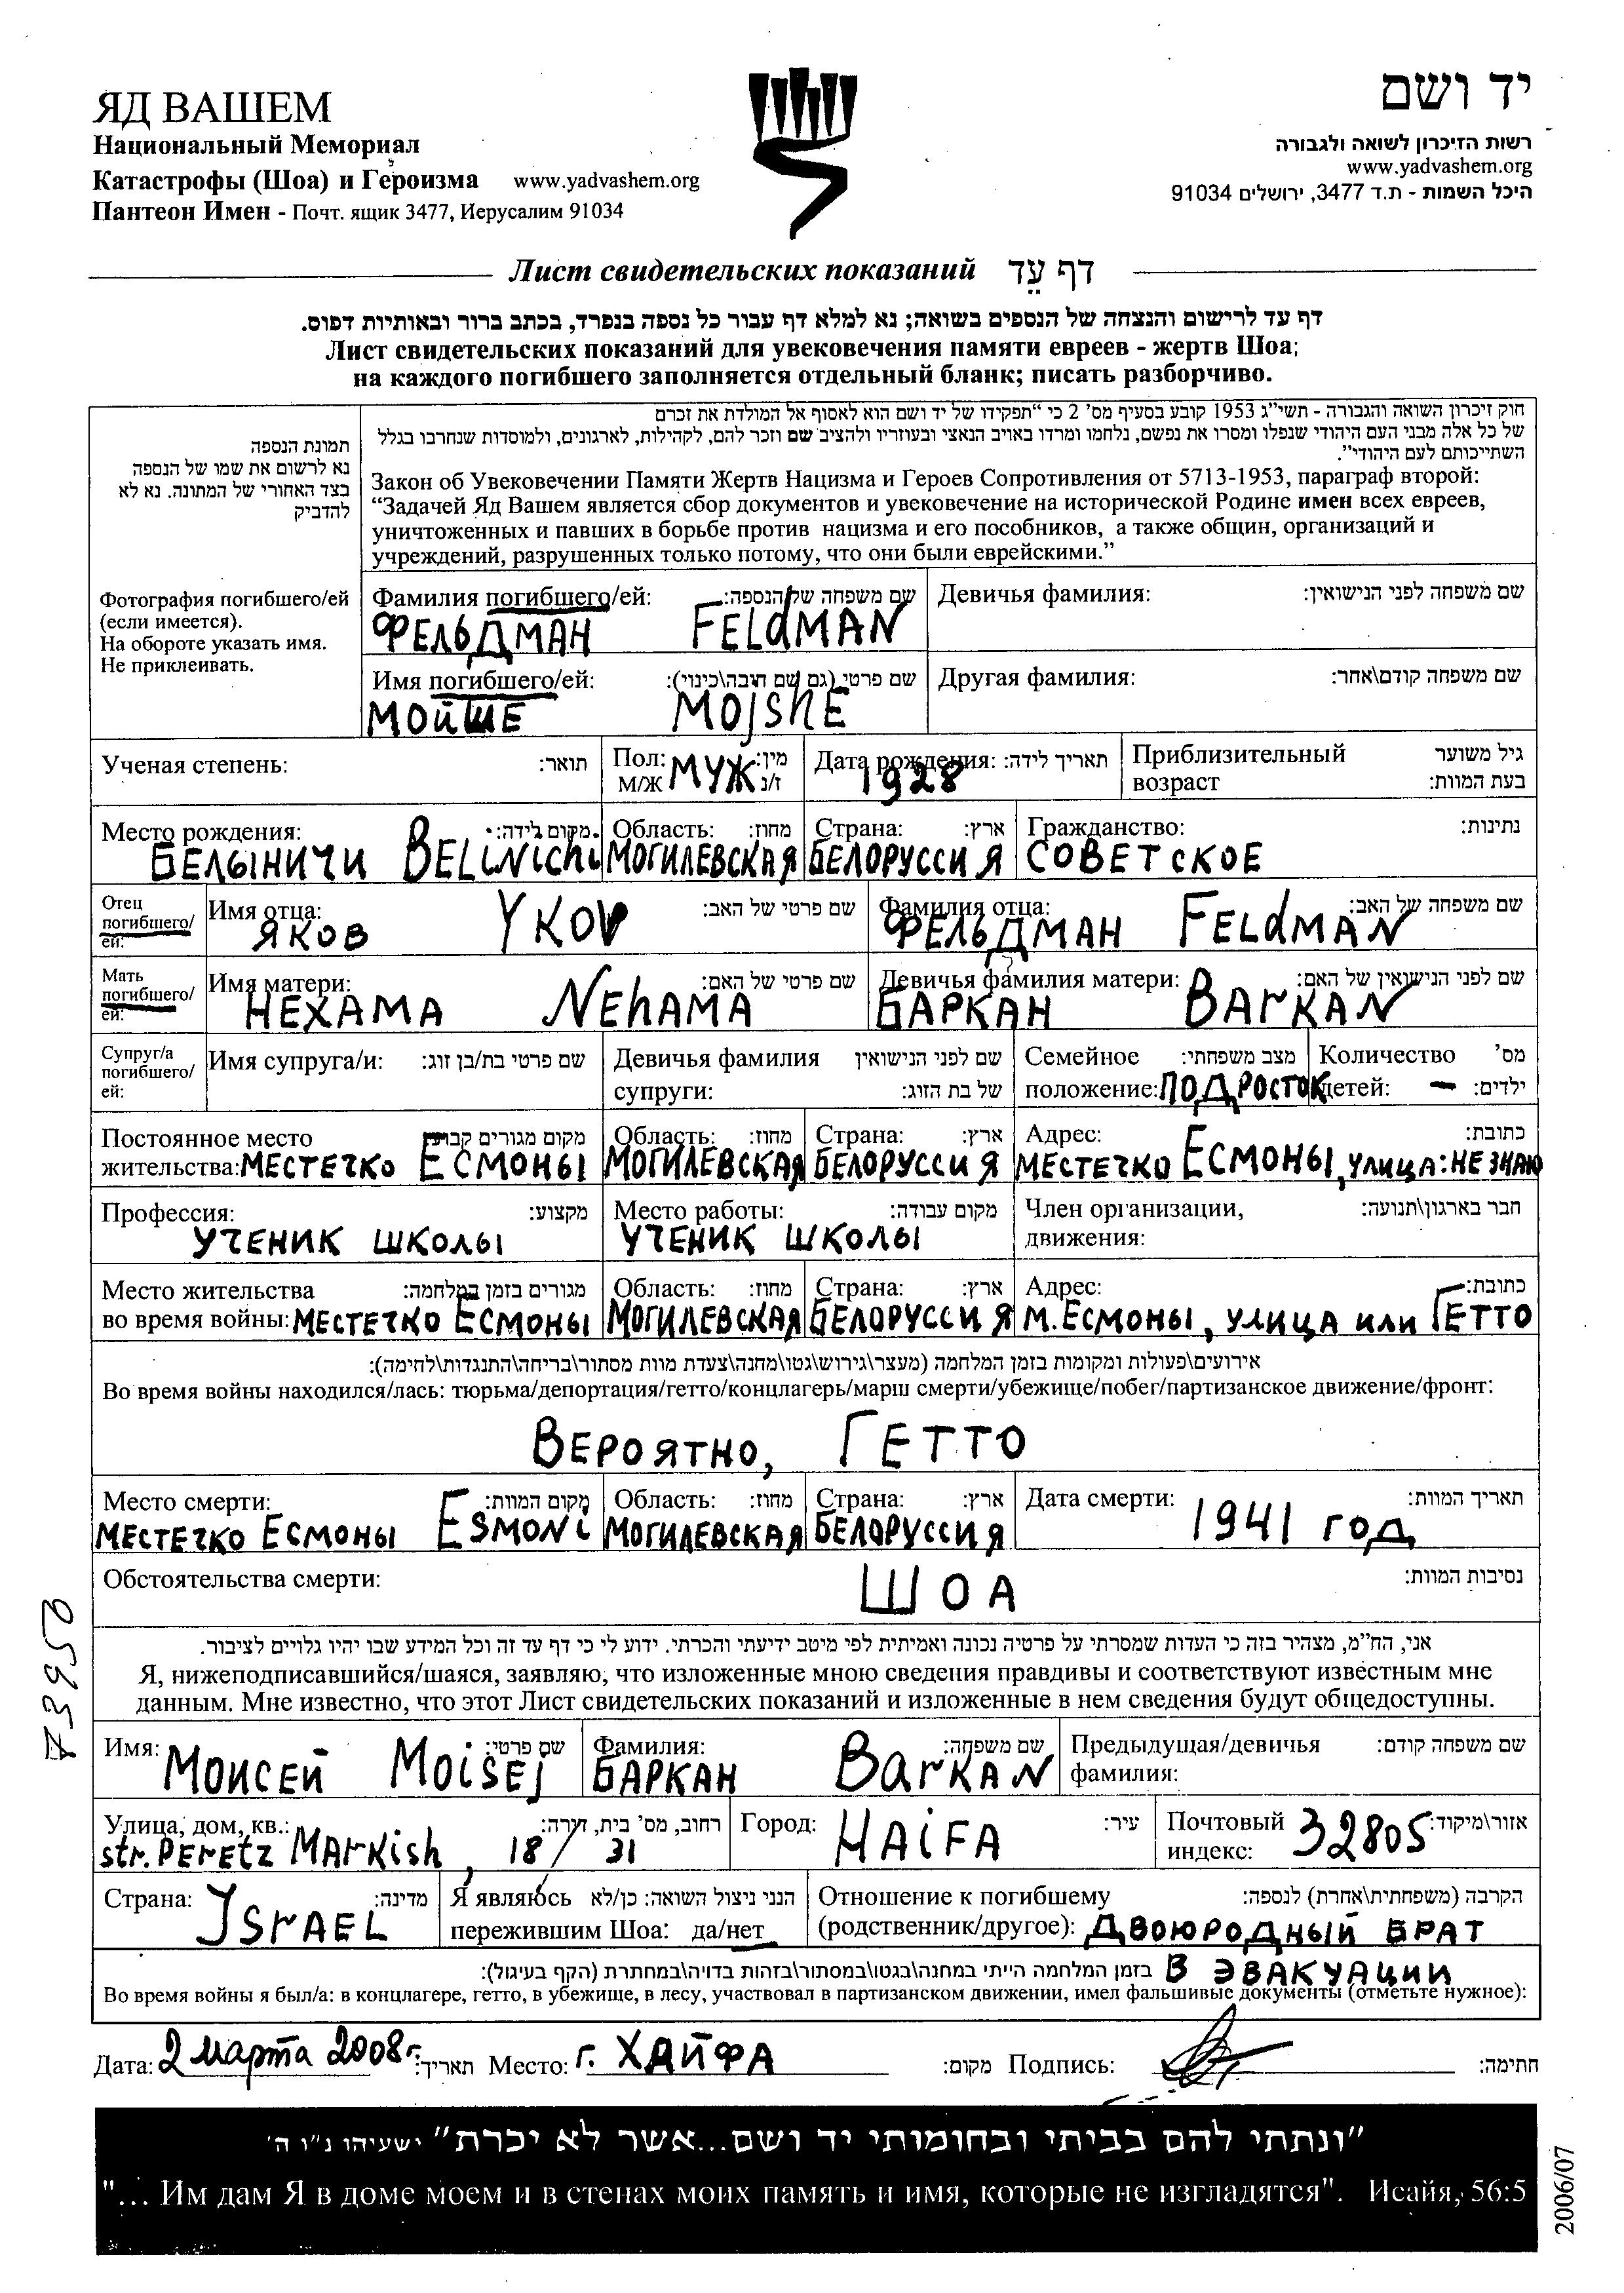 ЯД ВАШЕМ
Национальный Мемориал
Катастрофы (Шоа) и Героизма www.yadvashem.org
Пантеон Имен - Почт. ящик 3477, Иерусалим 91034
יד ושם
רשות הזיכרון לשואה ולגבורה
www.yadvashem.org
היכל השמות - ת.ד 3477, ירושלים 91034
Лист свидетельских показаний דף עֵד
דף עד לרישום והנצחה של הנספים בשואה; נא למלא דף עבור כל נספה בנפרד, בכתב ברור ובאותיות דפוס.
Лист свидетельских показаний для увековечения памяти евреев - жертв Шоа;
на каждого погибшего заполняется отдельный бланк; писать разборчиво.
תמונת הנספה
נא לרשום את שמו של הנספה
בצד האחורי של המתונה. נא לא
להדביק
Фотография погибшего/ей
(если имеется).
На обороте указать имя.
Не приклеивать.
חוק זיכרון השואה והגבורה - תשי"ג 1953 קובע בסעיף מס' 2 כי "תפקידו של יד ושם הוא לאסוף אל המולדת את זכרם
של כל אלה מבני העם היהודי שנפלו ומסרו את נפשם, נלחמו ומרדו באויב הנאצי ובעוזריו ולהציב שם וזכר להם, לקהילות, לארגונים, ולמוסדות שנחרבו בגלל
השתייכותם לעם היהודי".
Закон об Увековечении Памяти Жертв Нацизма и Героев Сопротивления от 5713-1953, параграф второй:
“Задачей Яд Вашем является сбор документов и увековечение на исторической Родине имен всех евреев,
уничтоженных и павших в борьбе против нацизма и его пособников, а также общин, организаций и
учреждений, разрушенных только потому, что они были еврейскими.”
Фамилия погибшего/ей: שם משפחה של הנספה: Девичья фамилия: שם משפחה לפני הנישואין:
ФЕЛЬДМАН FELdMAN
Имя погибшего/ей: שם פרטי (גם שם חיבה\כינוי): Другая фамилия: שם משפחה קודם\אחר:
МОЙШЕ MOjShE
Ученая степень: תואר: Пол: מין: Дата рождения: תאריך לידה: Приблизительный גיל משוער
М/Ж МУЖ ז/נ 1928 возраст בעת המוות:
Место рождения: מקום לידה: Область: מחוז: Страна: ארץ: Гражданство: נתינות:
БЕЛЫНИЧИ BELiNichi МОГИЛЕВСКАЯ БЕЛОРУССИЯ СОВЕТСКОЕ
Отец погибшего/ей: Имя отца: שם פרטי של האב: Фамилия отца: שם משפחה של האב:
ЯКОВ YKOV ФЕЛЬДМАН FELdMAN
Мать погибшего/ей: Имя матери: שם פרטי של האם: Девичья фамилия матери: שם לפני הנישואין של האם:
НЕХАМА NEhAMA БАРКАН BArKAN
Супруг/а погибшего/ей: Имя супруга/и: שם פרטי בת/בן זוג: Девичья фамилия שם לפני הנישואין Семейное מצב משפחתי: Количество מס'
супруги: של בת הזוג: положение: ПОДРОСТОК детей: — ילדים:
Постоянное место מקום מגורים קבוע: Область: מחוז: Страна: ארץ: Адрес: כתובת:
жительства: МЕСТЕЧКО ЕСМОНЫ МОГИЛЕВСКАЯ БЕЛОРУССИЯ МЕСТЕЧКО ЕСМОНЫ, УЛИЦА: НЕ ЗНАЮ
Профессия: מקצוע: Место работы: מקום עבודה: Член организации, חבר בארגון\תנועה:
УЧЕНИК ШКОЛЫ УЧЕНИК ШКОЛЫ движения:
Место жительства מגורים בזמן במלחמה: Область: מחוז: Страна: ארץ: Адрес: כתובת:
во время войны: МЕСТЕЧКО ЕСМОНЫ МОГИЛЕВСКАЯ БЕЛОРУССИЯ М. ЕСМОНЫ, УЛИЦА ИЛИ ГЕТТО
אירועים\פעולות ומקומות בזמן המלחמה (מעצר\גירוש\גטו\מחנה\צעדת מוות מסתור\בריחה\התנגדות\לחימה):
Во время войны находился/лась: тюрьма/депортация/гетто/концлагерь/марш смерти/убежище/побег/партизанское движение/фронт:
ВЕРОЯТНО, ГЕТТО
Место смерти: מקום המוות: Область: מחוז: Страна: ארץ: Дата смерти: תאריך המוות:
МЕСТЕЧКО ЕСМОНЫ ESMONi МОГИЛЕВСКАЯ БЕЛОРУССИЯ 1941 ГОД
Обстоятельства смерти: ШОА נסיבות המוות:
אני, הח"מ, מצהיר בזה כי העדות שמסרתי על פרטיה נכונה ואמיתית לפי מיטב ידיעתי והכרתי. ידוע לי כי דף עד זה וכל המידע שבו יהיו גלויים לציבור.
Я, нижеподписавшийся/шаяся, заявляю, что изложенные мною сведения правдивы и соответствуют известным мне
данным. Мне известно, что этот Лист свидетельских показаний и изложенные в нем сведения будут общедоступны.
Имя: שם פרטי: Фамилия: שם משפחה: Предыдущая/девичья שם משפחה קודם:
МОИСЕЙ MOiSEj БАРКАН BarKAN фамилия:
Улица, дом, кв.: רחוב, מס' בית, דירה: Город: עיר: Почтовый אזור\מיקוד:
str. PEretz MArkish, 18/31 HAiFA индекс: 32805
Страна: מדינה: Я являюсь הנני ניצול השואה: כן/לא Отношение к погибшему הקרבה (משפחתית\אחרת) לנספה:
ISrAEL пережившим Шоа: да/нет (родственник/другое): ДВОЮРОДНЫЙ БРАТ
בזמן המלחמה הייתי במחנה\בגטו\במסתור\בזהות בדויה\במחתרת (הקף בעיגול): В ЭВАКУАЦИИ
Во время войны я был/а: в концлагере, гетто, в убежище, в лесу, участвовал в партизанском движении, имел фальшивые документы (отметьте нужное):
Дата: 2 марта 2008г. תאריך: Место: г. ХАЙФА מקום: Подпись: חתימה:
"ונתתי להם בביתי ובחומותי יד ושם...אשר לא יכרת" ישעיהו נ"ו ה'
"... Им дам Я в доме моем и в стенах моих память и имя, которые не изгладятся". Исайя, 56:5
2006/07